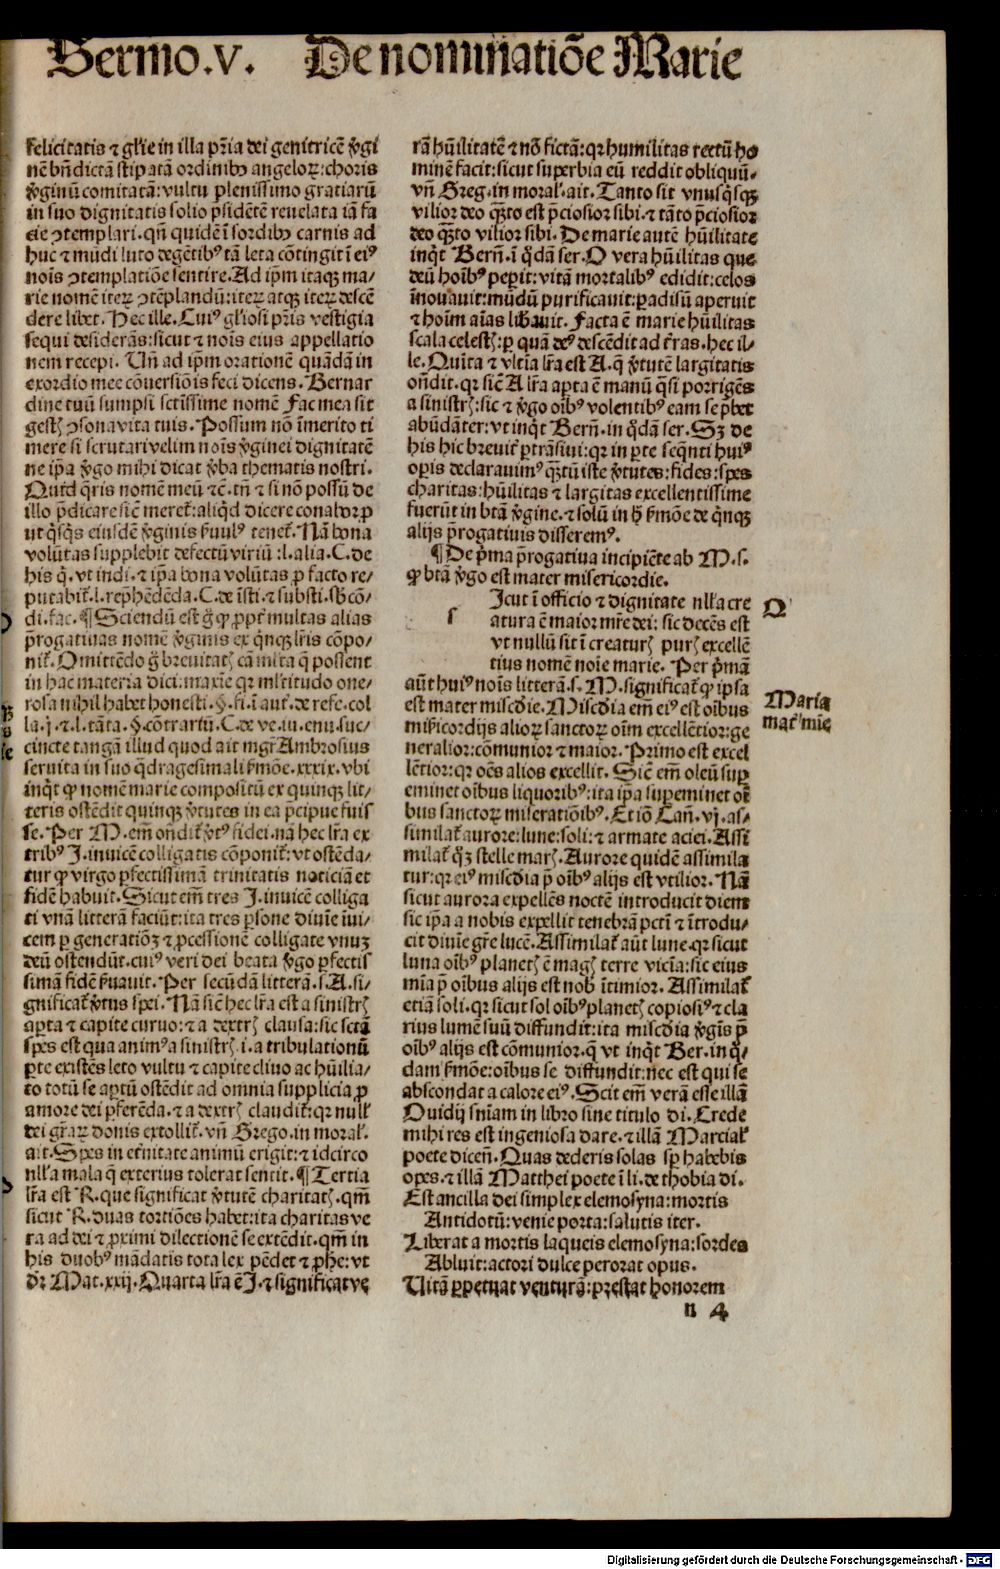 Sermo.v. De nominatiōe Marie
felicitatis ⁊ gl'ie in illa pr̄ia dei genitricē v̄gi
nē bn̄dictā stipatā ordinibꝰ angeloꝝ: choris
v̄ginū comitatā: vultu plenissimo gratiarū
in suo dignitatis solio p̄sidētē reuelata iā fa
cie ꝯtemplari. qn̄ quidē ī sordibꝰ carnis ad
huc ⁊ mūdi luto degētibꝰ tā leta cōtingit ī eiꝰ
noīs ꝯtemplatiōe sentire. Ad ip̄m itaqꝫ ma-
rie nomē iteꝝ ꝯtēplandū: iteꝝ atqꝫ iteꝝ descē
dere libet. Hec ille. Cuiꝰ gl'iosi pr̄is vestigia
sequi desiderās: sicut ⁊ noīs eius appellatio
nem recepi. Vn̄ ad ip̄m orationē quādā in
exordio mee cōuersiōis feci dicens. Bernar
dine tuū sumpsi sctīssime nomē Fac mea sit
gestꝭ ꝯsona vita tuis. Possum nō īmerito ti
mere si scrutari velim noīs v̄ginei dignitatē
ne ip̄a v̄go mihi dicat v̄ba thematis nostri.
Quid q̄ris nomē meū ⁊c̄. tn̄ ⁊ si nō possū de
illo p̄dicare sic̄ meret̄: aliq̄d dicere conabor ꝓ
ut q̄sq̄s eiusdē v̄ginis s̄uulꝰ tenet̄. Nā bona
volūtas supplebit defectū viriū: l. alia. C. de
his q̄. vt indi. ⁊ ip̄a bona volūtas ꝓ facto re-
putabit̄. l. rep̄hēdēda. C. de īsti. ⁊ substi. sb̄ cō-
di. fac. ¶Sciendū est g̊ ꝙ ꝓpt̄ multas alias
p̄rogatiuas nomē v̄ginis ex q̄nqꝫ lr̄is cōpo-
nit̄. Omittēdo g̊ breuitatꝭ cā ml̄ta q̄ possent
in hac materia dici: maxīe qr ml̄titudo one-
rosa nihil habet honesti. §. fi. ī aut̄. de refe. col
la. j. ⁊. l. tāta. §. cōtrartū. C. de ve. iu. enu. suc-
cincte tangā illud quod ait mgr̄ Ambrosius
seruita in suo q̄dragesimali s̄mōe. xxxix. vbi
inq̄t ꝙ nomē marie compositū ex quinqꝫ lit-
teris ostēdit quinqꝫ v̄tutes in ea p̄cipue fuis
se. Per M. em̄ oñdit̄ v̄tꝰ fidei. nā hec lr̄a ex
tribꝰ J. inuicē colligatis cōponit̄: vt ostēda-
tur ꝙ virgo ꝑfectissimā trinitatis noticiā et
fidē habuit. Sicut em̄ tres J. inuicē colliga
ti vnā litterā faciūt: ita tres ꝑsone diuīe īui-
cem ꝑ generatiōꝫ ⁊ ꝓcessionē colligate vnuꝫ
deū ostendūt. cuiꝰ veri dei beata v̄go ꝑfectis
simā fidē s̄uauit. Per secūdā litterā. s. A. si-
gnificat̄ v̄tus spei. Nā sic̄ hec lr̄a est a sinistrꝭ
aꝑta ⁊ capite curuo: ⁊ a dextrꝭ clausa: sic sctā
spes est qua animꝰ a sinistrꝭ. i. a tribulationū
ꝑte existēs leto vultu ⁊ capite cliuo ac hūilia-
to totū se aꝑtū ostēdit ad omnia supplicia ꝓ
amore dei ꝑferēda. ⁊ a dextrꝭ claudit̄: qr null'
dei gr̄aꝝ donis extollit̄. vn̄ Grego. in moral'.
ait. Spes in et̄nitate animū erigit: ⁊ idcirco
nll'a mala q̄ exterius tolerat sentit. ¶Tertia
lr̄a est R. que significat v̄tutē charitatꝭ. qm̄
sicut R. duas tortiōes habet: ita charitas ve
ra ad dei ⁊ ꝓximi dilectionē se extēdit. qm̄ in
his duobꝰ mādatis tota lex pēdet ⁊ ꝓph̄e: vt
dr̄ Mat. xxij. Quarta lr̄a ē J. ⁊ significat ve
rā hūilitatē ⁊ nō fictā: qr humilitas rectū ho
minē facit: sicut superbia eū reddit obliquū.
vn̄ Greg. in moral'. ait. Tanto sit vnusq̄sqꝫ
vilior deo qꝫto est p̄ciosior sibi. ⁊ tāto p̄ciosior
deo qꝫto vilior sibi. De marie autē hūilitate
inq̄t Bern̄. ī q̄dā ser. O vera hūilitas que
deū hoībꝰ peꝑit: vitā mortalibꝰ edidit: celos
īnouauit: mūdū purificauit: ꝑadisū aperuit
⁊ hoīm aīas libauit. Facta ē marie hūilitas
scala celestꝭ: ꝑ quā deꝰ descēdit ad t̄ras. hec il-
le. Quīta ⁊ vltīa lr̄a est A. q̄ v̄tutē largitatis
oñdit. qr sic̄ A lr̄a apta ē manū q̄si porrigēs
a sinistrꝭ: sic ⁊ v̄go oībꝰ volentibꝰ eam se p̄bet
abūdāter: vt inq̄t Bern̄. in q̄dā ser. Sꝫ de
his hic breuit̄ ꝑtrāsiui: qr in ꝑte seq̄nti huiꝰ
oꝑis declarauimꝰ qꝫtū iste v̄tutes: fides: spes
charitas: hūilitas ⁊ largitas excellentissime
fuerūt in btā v̄gine. ⁊ solū in h̄ s̄mōe de q̄nqꝫ
alijs p̄rogatiuis disseremꝰ.
¶De p̄ma p̄rogatiua incipiēte ab M. s.
ꝙ btā v̄go est mater misericordie.
s Icut ī officio ⁊ dignitate nll'a cre Q
atura ē maior mr̄e dei: sic decēs est
vt nullū sit ī creaturꝭ purꝭ excellē
tius nomē noīe marie. Per p̄mā
aūt huiꝰ noīs litterā. s. M. significat̄ ꝙ ip̄sa
est mater miscd̄ie. Miscd̄ia em̄ eiꝰ est oībus Maria
mīscd̄ijs alioꝝ sanctoꝝ oīm excellētior: ge mat̄ mie
neralior: cōmunior ⁊ maior. Primo est excel
lētior: qr oēs alios excellit. Sic̄ em̄ oleū suꝑ
eminet oībus liquoribꝰ: ita ip̄a suꝑeminet oī
bus sanctoꝝ miseratiōibꝰ. Et iō Can̄. vj. as-
similat̄ aurore: lune: soli: ⁊ armate aciei. Assi
milat̄ q̄ꝫ stelle marꝭ. Aurore quidē assimila
tur: qr eiꝰ miscd̄ia p̄ oībꝰ alijs est vtilior. Nā
sicut aurora expellēs noctē introducit diem
sic ip̄a a nobis expellit tenebrā pctī ⁊ ītrodu-
cit diuīe gr̄e lucē. Assimilat̄ aūt lune. qr sicut
luna oībꝰ planetꝭ ē magꝭ terre vicīa: sic eius
mīa p̄ oībus alijs est nob̄ ītimior. Assimilat̄
etiā soli. qr sicut sol oībꝰ planetꝭ copiosiꝰ ⁊ cla
rius lumē suū diffundit: ita miscd̄ia v̄gīs p̄
oībꝰ alijs est cōmunior. q̄ vt inq̄t Ber. in q̄-
dam s̄mōe: oībus se diffundit: nec est qui se
abscondat a calore eiꝰ. Scit em̄ verā esse illā
Ouidij sn̄iam in libro sine titulo di. Crede
mihi res est ingeniosa dare. ⁊ illā Marcial'
poete dicen̄. Quas dederis solas sp̄ habebis
opes. ⁊ illā Matthei poete ī li. de thobia di.
Est ancilla dei simplex elemosyna: mortis
Antidotū: venie porta: salutis iter.
Liberat a mortis laqueis elemosyna: sordes
Abluit: actori dulce perorat opus.
Vitā ꝑpetuat venturā: prestat honorem
n 4
Digitalisierung gefördert durch die Deutsche Forschungsgemeinschaft - DFG